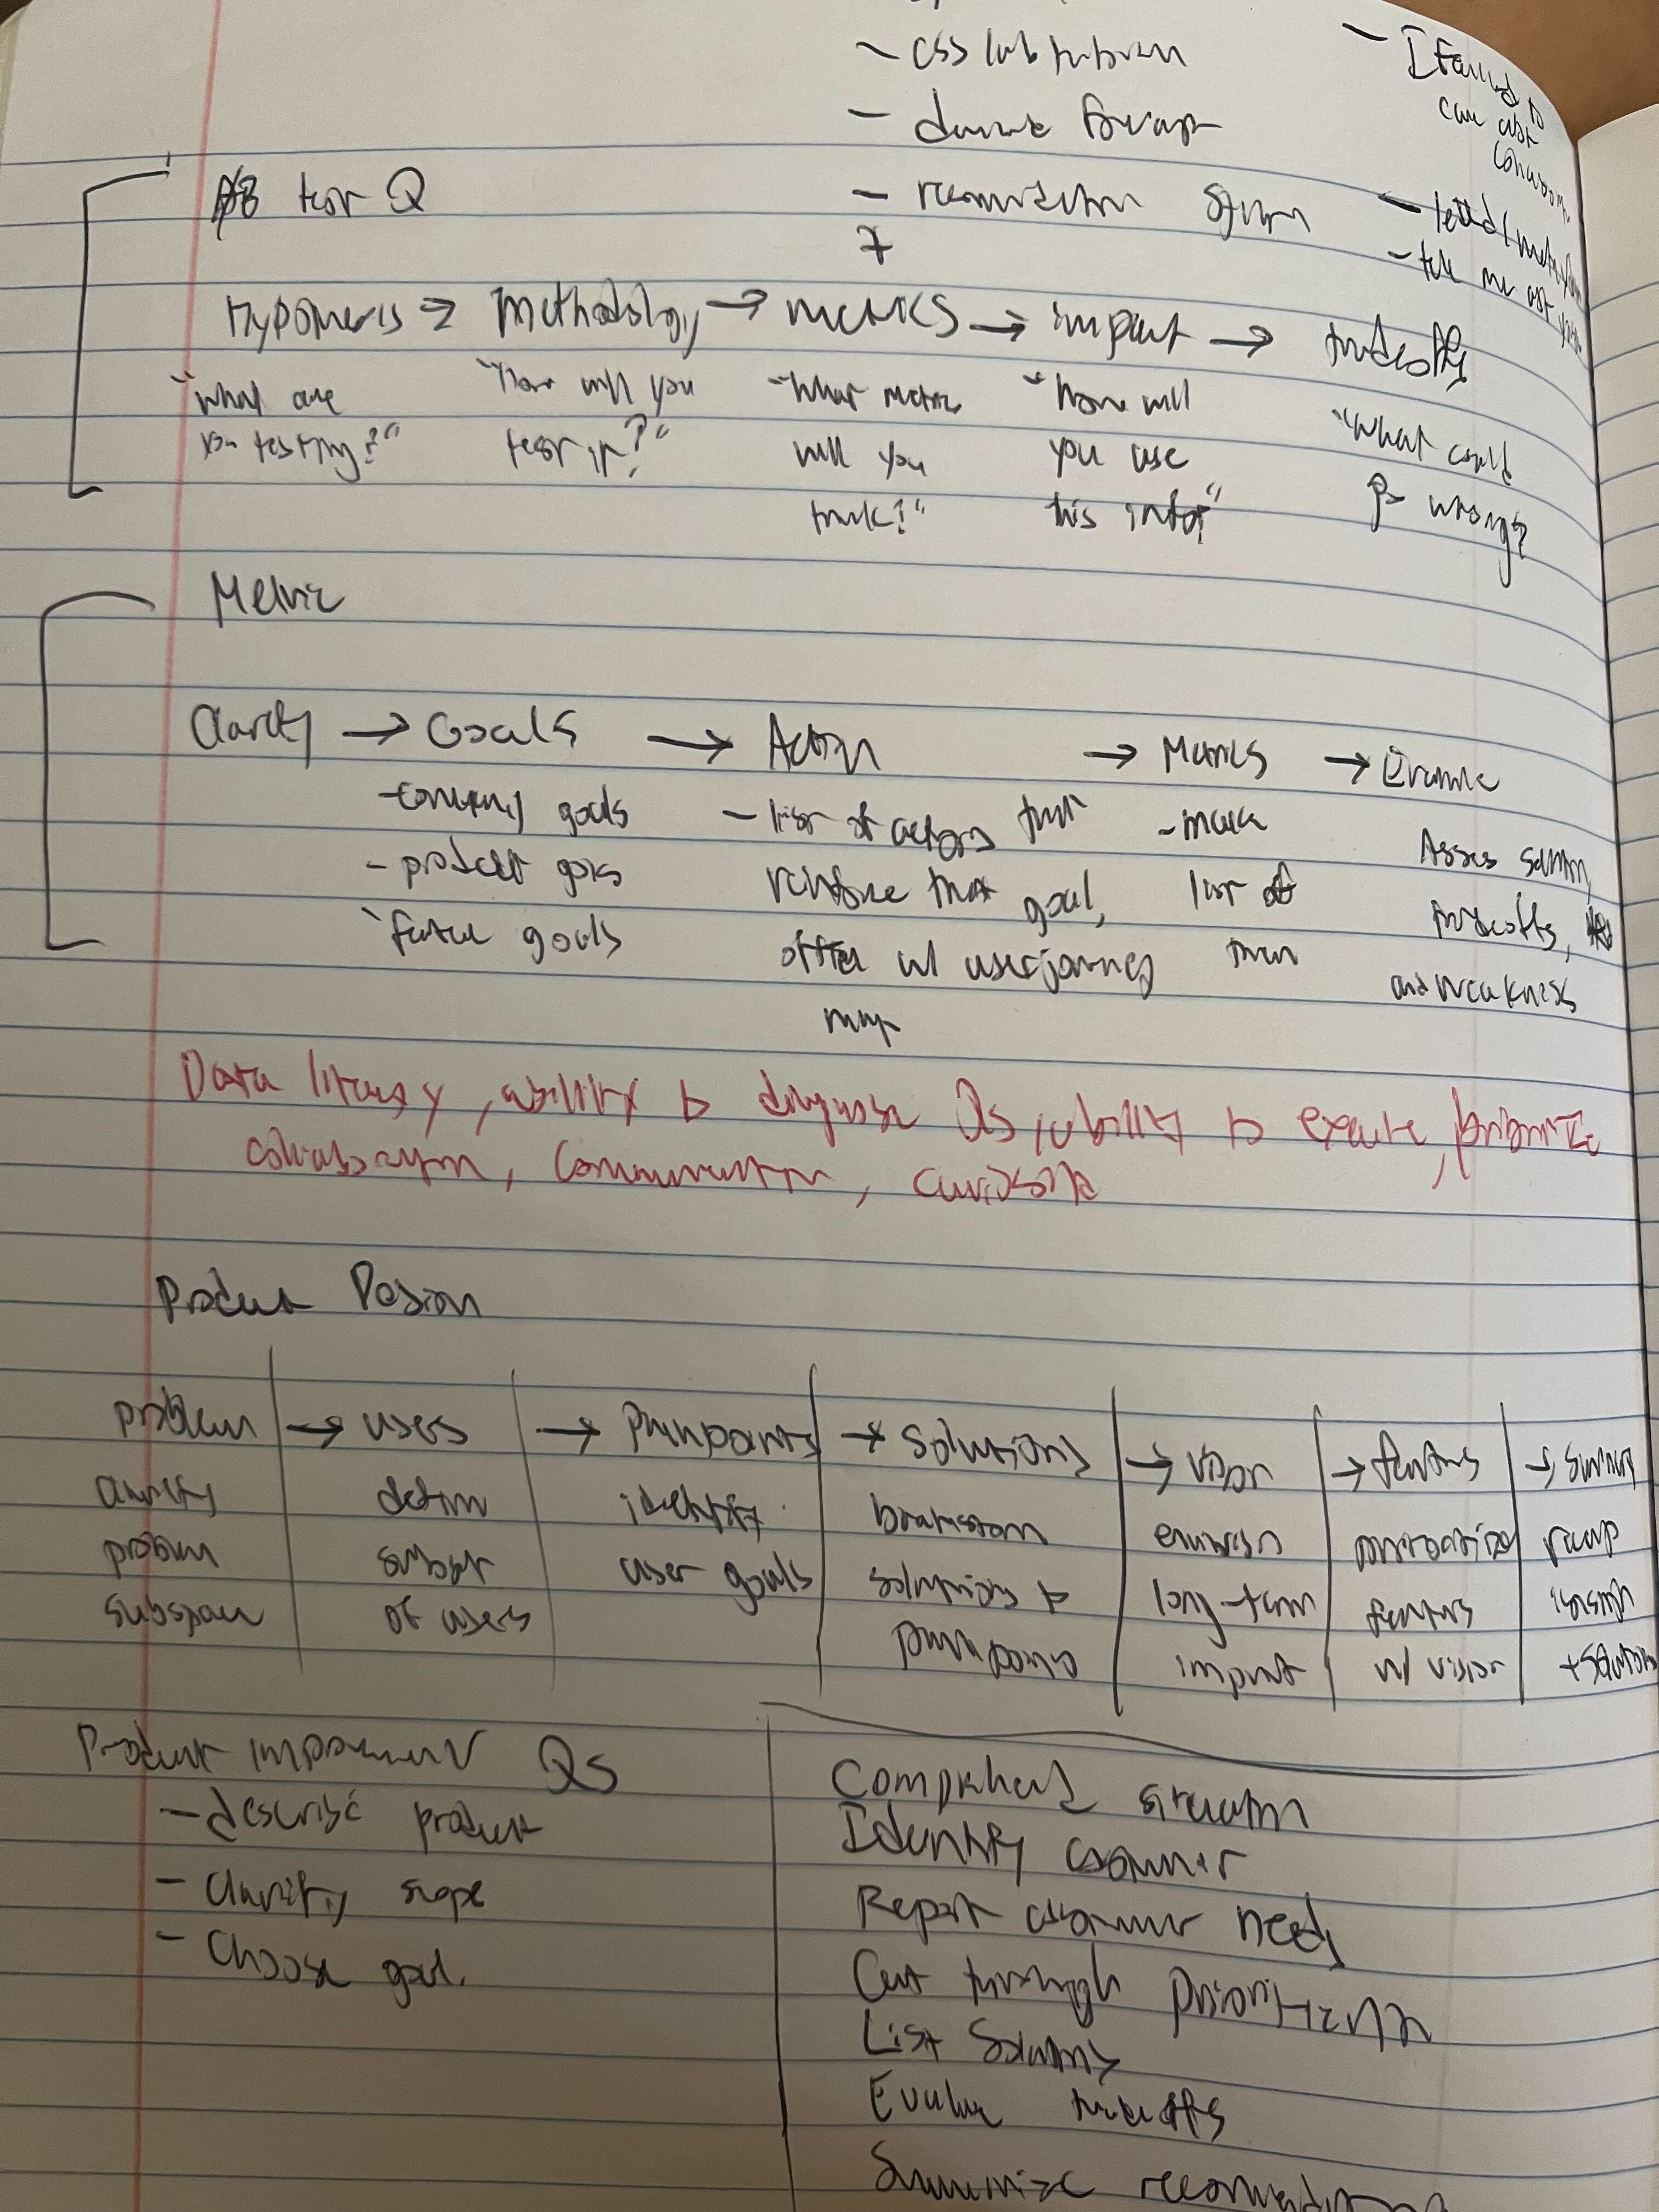 - CSS lab
-
-
- I failed to
can
- tell me
AB test Q
Hypothesis → Methodology → metrics → impact → tradeoffs
"what are you testing?"
"How will you test it?"
"what metrics will you track?"
"how will you use this info?"
"what could go wrong?
Metric
Clarify → Goals → Action → Metrics → Evaluate
- company goals
- product goals
- future goals
- list of actions that
reinforce that goal,
often w/ user journey
map
- make
list of
them
Assess
tradeoffs,
and weakness
Data literacy, ability to diagnose Qs, ability to execute, prioritize
collaboration, communication, curiosity
Product Design
problem → users → Painpoints → solutions → vision → features → summary
clarify
problem
subspace
define
subset
of users
identify
user goals
brainstorm
solutions to
painpoints
envision
long-term
impact
prioritize
features
w/ vision
recap
+ solutions
Product improvement Qs
- describe product
- clarify scope
- Choose goal.
Comprehend situation
Identify customer
Report customer needs
Cut through prioritization
List solutions
Evaluate tradeoffs
Summarize recommendation